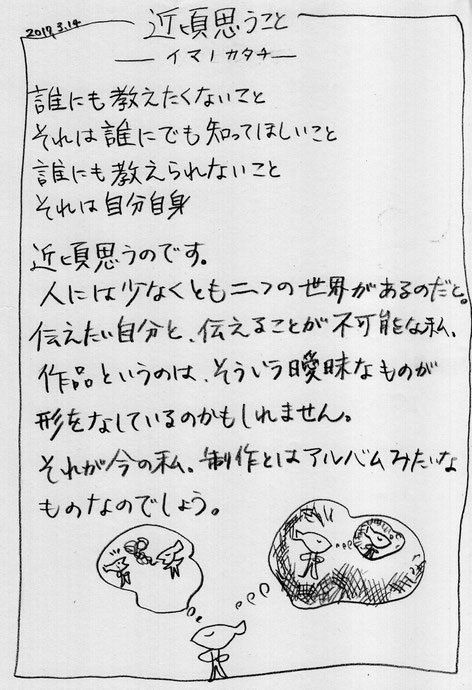 2017.3.14
近頃思うこと
イマノカタチ
誰にも教えたくないこと
それは誰にでも知ってほしいこと
誰にも教えられないこと
それは自分自身
近頃思うのです。
人には少なくとも二つの世界があるのだと。
伝えたい自分と、伝えることが不可能な私、
作品というのは、そういう曖昧なものが
形をなしているのかもしれません。
それが今の私。制作とはアルバムみたいな
ものなのでしょう。